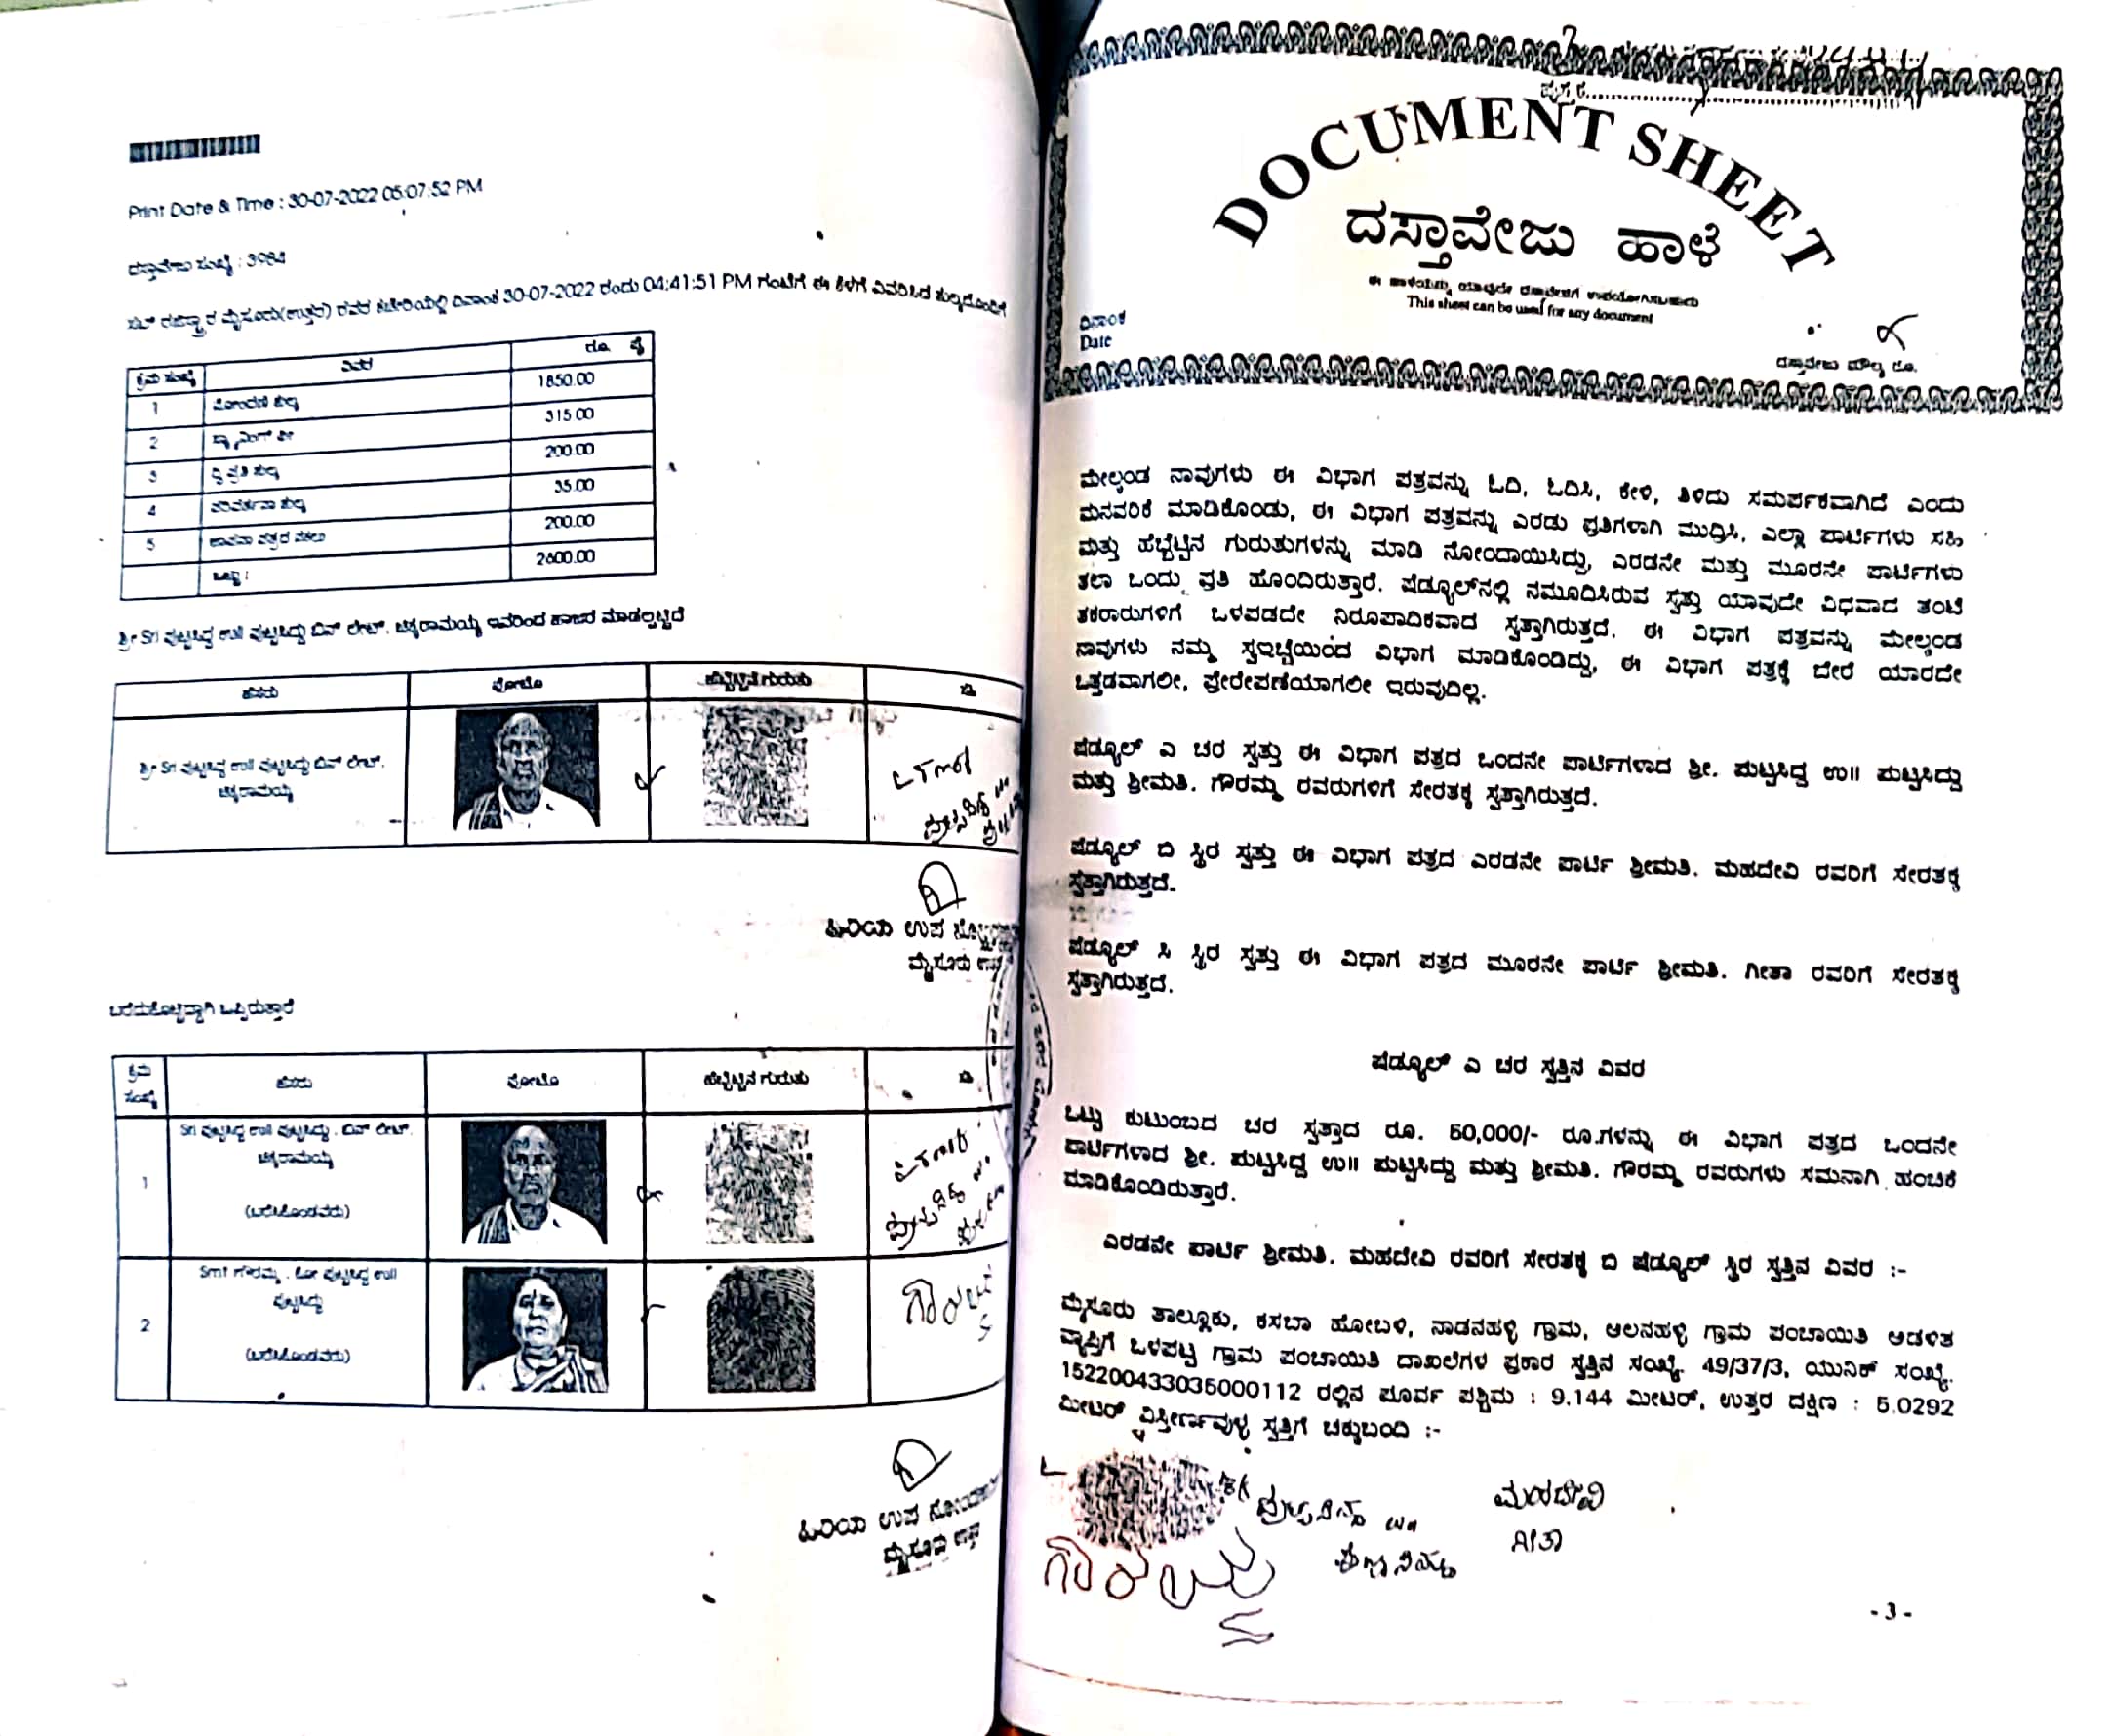 Print Date & Time : 30-07-2022 05:07:52 PM
ದಸ್ತಾವೇಜು ಸಂಖ್ಯೆ : 3984
ಸಬ್ ರಜಿಸ್ಟ್ರಾರ ಮೈಸೂರು(ಉತ್ತರ) ರವರ ಕಚೇರಿಯಲ್ಲಿ ದಿನಾಂಕ 30-07-2022 ರಂದು 04:41:51 PM ಗಂಟೆಗೆ ಈ ಕೆಳಗೆ ವಿವರಿಸಿದ ಶುಲ್ಕದೊಂದಿಗೆ
ಕ್ರಮ ಸಂಖ್ಯೆ ವಿವರ ರೂ. ಪೈ
1 ನೋಂದಣಿ ಶುಲ್ಕ 1850.00
2 ಸ್ಕ್ಯಾನಿಂಗ್ ಫೀ 315.00
3 ದ್ವಿ ಪ್ರತಿ ಶುಲ್ಕ 200.00
4 ಪರಿವರ್ತನಾ ಶುಲ್ಕ 35.00
5 200.00
ಒಟ್ಟು : 2600.00
ಶ್ರೀ Sri ಪುಟ್ಟಸಿದ್ದ ಉ|| ಪುಟ್ಟಸಿದ್ದು ಬಿನ್ ಲೇಟ್. ಚಿಕ್ಕರಾಮಯ್ಯ ಇವರಿಂದ ಹಾಜರ ಮಾಡಲ್ಪಟ್ಟಿದೆ
ಹೆಸರು ಫೋಟೊ ಹೆಬ್ಬೆಟ್ಟಿನ ಗುರುತು
ಶ್ರೀ Sri ಪುಟ್ಟಸಿದ್ದ ಉ|| ಪುಟ್ಟಸಿದ್ದು ಬಿನ್ ಲೇಟ್.
ಚಿಕ್ಕರಾಮಯ್ಯ
ಹಿರಿಯ ಉಪ
ಮೈಸೂರು
ಬರೆದುಕೊಟ್ಟಿದ್ದಾಗಿ ಒಪ್ಪಿರುತ್ತಾರೆ
ಕ್ರಮ ಸಂಖ್ಯೆ ಹೆಸರು ಫೋಟೊ ಹೆಬ್ಬೆಟ್ಟಿನ ಗುರುತು
1 Sri ಪುಟ್ಟಸಿದ್ದ ಉ|| ಪುಟ್ಟಸಿದ್ದು . ಬಿನ್ ಲೇಟ್.
ಚಿಕ್ಕರಾಮಯ್ಯ
(ಬರೆಸಿಕೊಂಡವರು)
2 Smt ಗೌರಮ್ಮ . ಕೋಂ ಪುಟ್ಟಸಿದ್ದ ಉ||
ಪುಟ್ಟಸಿದ್ದು
(ಬರೆಸಿಕೊಂಡವರು)
ಹಿರಿಯ ಉಪ
ಮೈಸೂರು
DOCUMENT SHEET
ದಸ್ತಾವೇಜು ಹಾಳೆ
ಈ ಹಾಳೆಯನ್ನು ಯಾವುದೇ ದಸ್ತಾವೇಜಿಗೆ ಉಪಯೋಗಿಸಬಹುದು
This sheet can be used for any document
ದಿನಾಂಕ
Date
ದಸ್ತಾವೇಜು ಮೌಲ್ಯ ರೂ.
ಮೇಲ್ಕಂಡ ನಾವುಗಳು ಈ ವಿಭಾಗ ಪತ್ರವನ್ನು ಓದಿ, ಓದಿಸಿ, ಕೇಳಿ, ತಿಳಿದು ಸಮರ್ಪಕವಾಗಿದೆ ಎಂದು
ಮನವರಿಕೆ ಮಾಡಿಕೊಂಡು, ಈ ವಿಭಾಗ ಪತ್ರವನ್ನು ಎರಡು ಪ್ರತಿಗಳಾಗಿ ಮುದ್ರಿಸಿ, ಎಲ್ಲಾ ಪಾರ್ಟಿಗಳು ಸಹಿ
ಮತ್ತು ಹೆಬ್ಬೆಟ್ಟಿನ ಗುರುತುಗಳನ್ನು ಮಾಡಿ ನೋಂದಾಯಿಸಿದ್ದು, ಎರಡನೇ ಮತ್ತು ಮೂರನೇ ಪಾರ್ಟಿಗಳು
ತಲಾ ಒಂದು ಪ್ರತಿ ಹೊಂದಿರುತ್ತಾರೆ. ಷೆಡ್ಯೂಲ್‌ನಲ್ಲಿ ನಮೂದಿಸಿರುವ ಸ್ವತ್ತು ಯಾವುದೇ ವಿಧವಾದ ತಂಟೆ
ತಕರಾರುಗಳಿಗೆ ಒಳಪಡದೇ ನಿರೂಪಾದಿಕವಾದ ಸ್ವತ್ತಾಗಿರುತ್ತದೆ. ಈ ವಿಭಾಗ ಪತ್ರವನ್ನು ಮೇಲ್ಕಂಡ
ನಾವುಗಳು ನಮ್ಮ ಸ್ವಇಚ್ಚೆಯಿಂದ ವಿಭಾಗ ಮಾಡಿಕೊಂಡಿದ್ದು, ಈ ವಿಭಾಗ ಪತ್ರಕ್ಕೆ ಬೇರೆ ಯಾರದೇ
ಒತ್ತಡವಾಗಲೀ, ಪ್ರೇರೇಪಣೆಯಾಗಲೀ ಇರುವುದಿಲ್ಲ.
ಷೆಡ್ಯೂಲ್ ಎ ಚರ ಸ್ವತ್ತು ಈ ವಿಭಾಗ ಪತ್ರದ ಒಂದನೇ ಪಾರ್ಟಿಗಳಾದ ಶ್ರೀ. ಪುಟ್ಟಸಿದ್ದ ಉ|| ಪುಟ್ಟಸಿದ್ದು
ಮತ್ತು ಶ್ರೀಮತಿ. ಗೌರಮ್ಮ ರವರುಗಳಿಗೆ ಸೇರತಕ್ಕ ಸ್ವತ್ತಾಗಿರುತ್ತದೆ.
ಷೆಡ್ಯೂಲ್ ಬಿ ಸ್ಥಿರ ಸ್ವತ್ತು ಈ ವಿಭಾಗ ಪತ್ರದ ಎರಡನೇ ಪಾರ್ಟಿ ಶ್ರೀಮತಿ. ಮಹದೇವಿ ರವರಿಗೆ ಸೇರತಕ್ಕ
ಸ್ವತ್ತಾಗಿರುತ್ತದೆ.
ಷೆಡ್ಯೂಲ್ ಸಿ ಸ್ಥಿರ ಸ್ವತ್ತು ಈ ವಿಭಾಗ ಪತ್ರದ ಮೂರನೇ ಪಾರ್ಟಿ ಶ್ರೀಮತಿ. ಗೀತಾ ರವರಿಗೆ ಸೇರತಕ್ಕ
ಸ್ವತ್ತಾಗಿರುತ್ತದೆ.
ಷೆಡ್ಯೂಲ್ ಎ ಚರ ಸ್ವತ್ತಿನ ವಿವರ
ಒಟ್ಟು ಕುಟುಂಬದ ಚರ ಸ್ವತ್ತಾದ ರೂ. 50,000/- ರೂ.ಗಳನ್ನು ಈ ವಿಭಾಗ ಪತ್ರದ ಒಂದನೇ
ಪಾರ್ಟಿಗಳಾದ ಶ್ರೀ. ಪುಟ್ಟಸಿದ್ದ ಉ|| ಪುಟ್ಟಸಿದ್ದು ಮತ್ತು ಶ್ರೀಮತಿ. ಗೌರಮ್ಮ ರವರುಗಳು ಸಮನಾಗಿ ಹಂಚಿಕೆ
ಮಾಡಿಕೊಂಡಿರುತ್ತಾರೆ.
ಎರಡನೇ ಪಾರ್ಟಿ ಶ್ರೀಮತಿ. ಮಹದೇವಿ ರವರಿಗೆ ಸೇರತಕ್ಕ ಬಿ ಷೆಡ್ಯೂಲ್ ಸ್ಥಿರ ಸ್ವತ್ತಿನ ವಿವರ :-
ಮೈಸೂರು ತಾಲ್ಲೂಕು, ಕಸಬಾ ಹೋಬಳಿ, ನಾಡನಹಳ್ಳಿ ಗ್ರಾಮ, ಆಲನಹಳ್ಳಿ ಗ್ರಾಮ ಪಂಚಾಯಿತಿ ಆಡಳಿತ
ವ್ಯಾಪ್ತಿಗೆ ಒಳಪಟ್ಟ ಗ್ರಾಮ ಪಂಚಾಯಿತಿ ದಾಖಲೆಗಳ ಪ್ರಕಾರ ಸ್ವತ್ತಿನ ಸಂಖ್ಯೆ. 49/37/3, ಯುನಿಕ್ ಸಂಖ್ಯೆ.
152200433035000112 ರಲ್ಲಿನ ಪೂರ್ವ ಪಶ್ಚಿಮ : 9.144 ಮೀಟರ್, ಉತ್ತರ ದಕ್ಷಿಣ : 5.0292
ಮೀಟರ್ ವಿಸ್ತೀರ್ಣವುಳ್ಳ ಸ್ವತ್ತಿಗೆ ಚಕ್ಕುಬಂದಿ :-
ಮಹದೇವಿ
ಗೀತಾ
ಗೌರಮ್ಮ
- 3 -